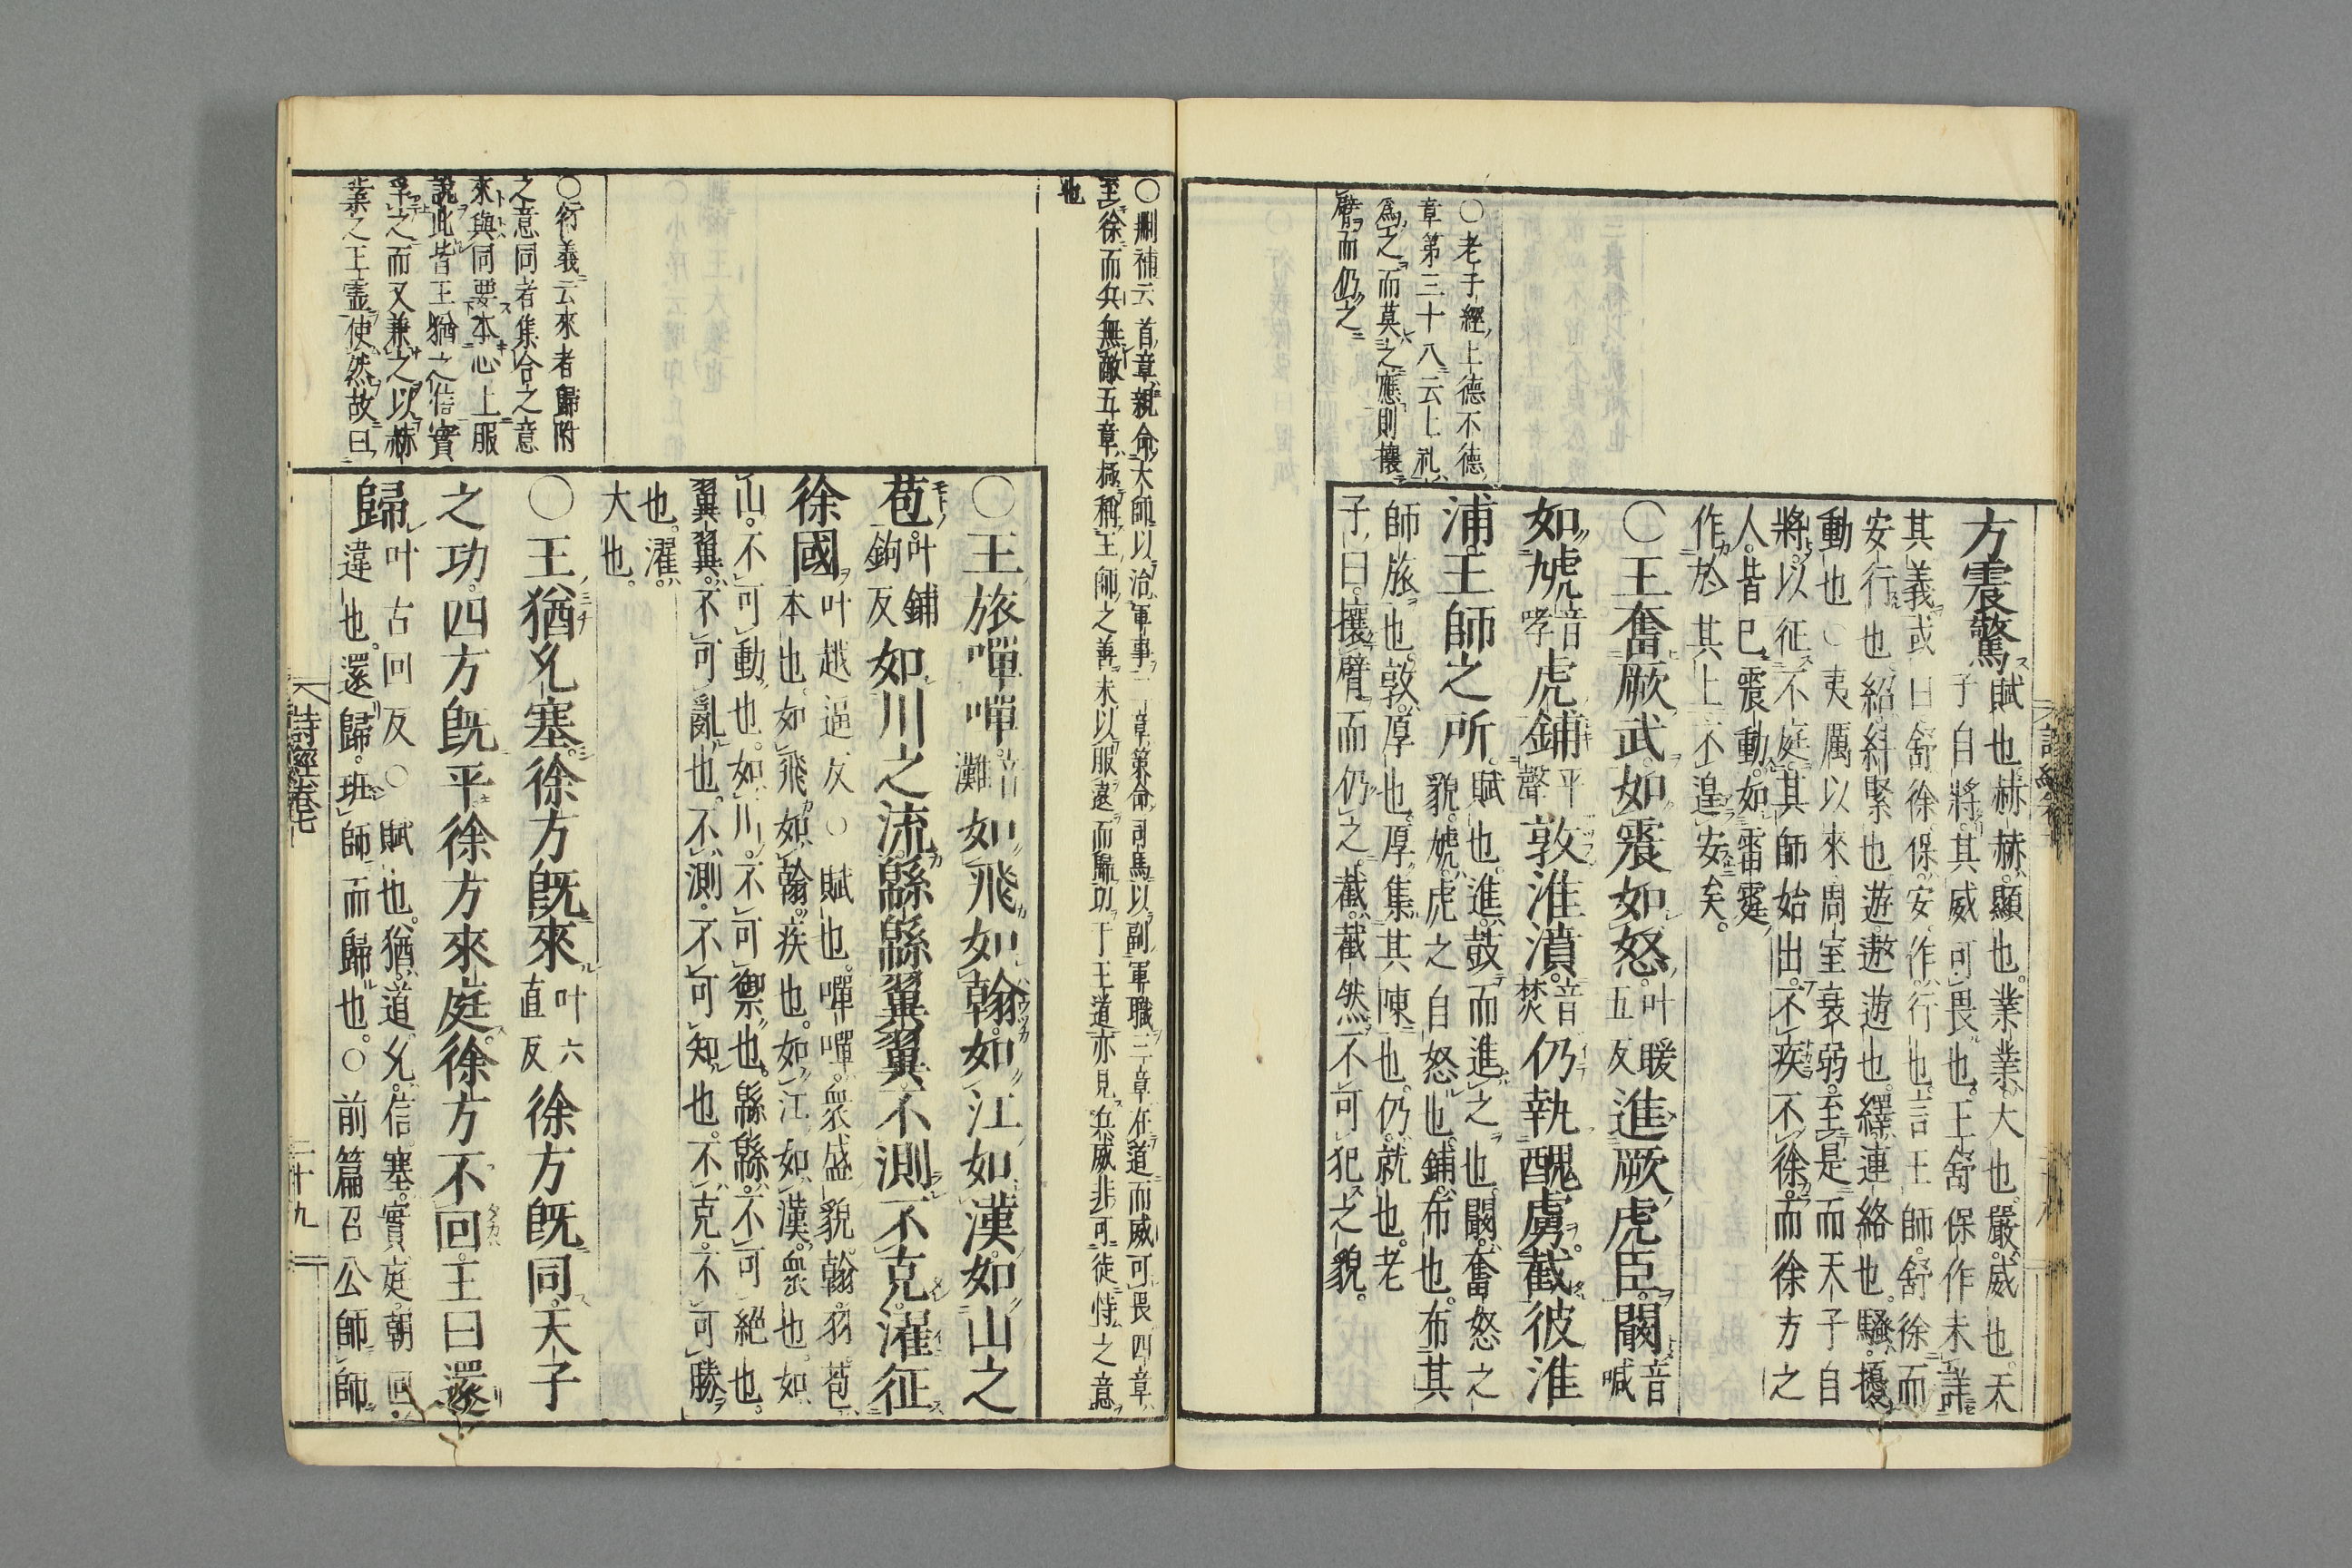 方震驚賦也赫赫顯也業業大也嚴威也天
子自將其威可畏也王舒保作未詳
其義或曰舒徐保安作行也言王師舒徐而
安行也紹糾緊也遊遨遊也繹連絡也騷擾
動也○夷厲以來周室衰弱至是而天子自
將以征不庭其師始出不疾不徐而徐方之
人皆巳震動如雷霆
作於其上不遑安矣
○王奮厥武如震如怒叶暖五反進厥虎臣闞音喊
如虓音哮虎鋪平聲敦淮濆音焚仍執醜虜截彼淮
浦王師之所賦也進鼓而進之也闞奮怒之
貌虓虎之自怒也鋪布也布其
師旅也敦厚也厚集其陳也仍就也老
子曰攘臂而仍之截截然不可犯之貌
○老子經上德不德
章第三十八云上礼
爲之而莫之應則攘
臂而仍之
○刪補云首章親命大師以治軍事二章策命司馬以副軍職三章在道而威可畏四章
至徐而兵無敵五章極稱王師之善末以服遠而歸功于王道亦見兵威非可徒恃之意
也
○王旅嘽嘽音灘如飛如翰如江如漢如山之
苞叶鋪鉤反如川之流緜緜翼翼不測不克濯征
徐國叶越逼反○賦也嘽嘽衆盛貌翰羽苞
本也如飛如翰疾也如江如漢衆也如
山不可動也如川不可禦也緜緜不可絕也
翼翼不可亂也不測不可知也不克不可勝
也濯
大也
○王猶允塞徐方旣來叶六直反徐方旣同天子
之功四方旣平徐方來庭徐方不回王曰還
歸叶古回反○賦也猶道允信塞實庭朝回
違也還歸班師而歸也○前篇召公師師
○衍義云來者歸附
之意同者集合之意
來與同要本心上服
說此皆王猶之信實
孚之而又兼之以赫
業之王霊使然故曰
詩經卷七
二十九